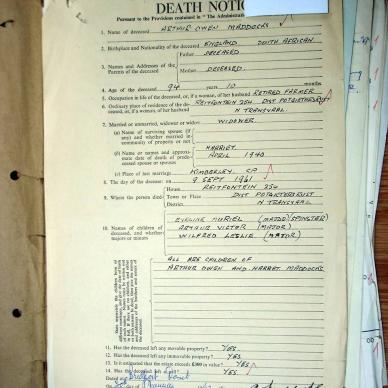 DEATH NOTIC
Pursuant to the Provisions contained in "The Administrat
1. Name of deceased ARTHUR OWEN MADDOCKS
2. Birthplace and Nationality of the deceased ENGLAND SOUTH AFRICAN
Father DECEASED
3. Names and Addresses of the Parents of the deceased
Mother DECEASED.
4. Age of the deceased 94 years 10 months
5. Occupation in life of the deceased, or, if a woman, of her husband RETIRED FARMER
6. Ordinary place of residence of the deceased, or, if a woman, of her husband REITFONTEIN 254 DIST POTGIETERSRUST
N TRANSVAAL.
7. Married or unmarried, widower or widow WIDOWER.
(a) Name of surviving spouse (if any) and whether married in community of property or not
(b) Name or names and approximate date of death of predeceased spouse or spouses HARRIET.
APRIL 1940
(c) Place of last marriage KIMBERLEY. CP
8. The day of the decease: on 9 SEPT 1961
House REITFONTEIN 254
9. Where the person died Town or Place DIST POTGIETERSRUST
District N TRANSVAAL
10. Names of children of deceased, and whether majors or minors
EVELINE MURIEL (MAJOR) (SPINSTER)
ARTHUR VICTOR (MAJOR)
WILFRED LESLIE (MAJOR)
ALL ARE CHILDREN OF
ARTHUR OWEN AND HARRIET MADDOCKS.
11. Has the deceased left any movable property? YES
12. Has the deceased left any immovable property? YES
13. Is it estimated that the estate exceeds £300 in value? YES
14. Has the deceased left a YES
Dated